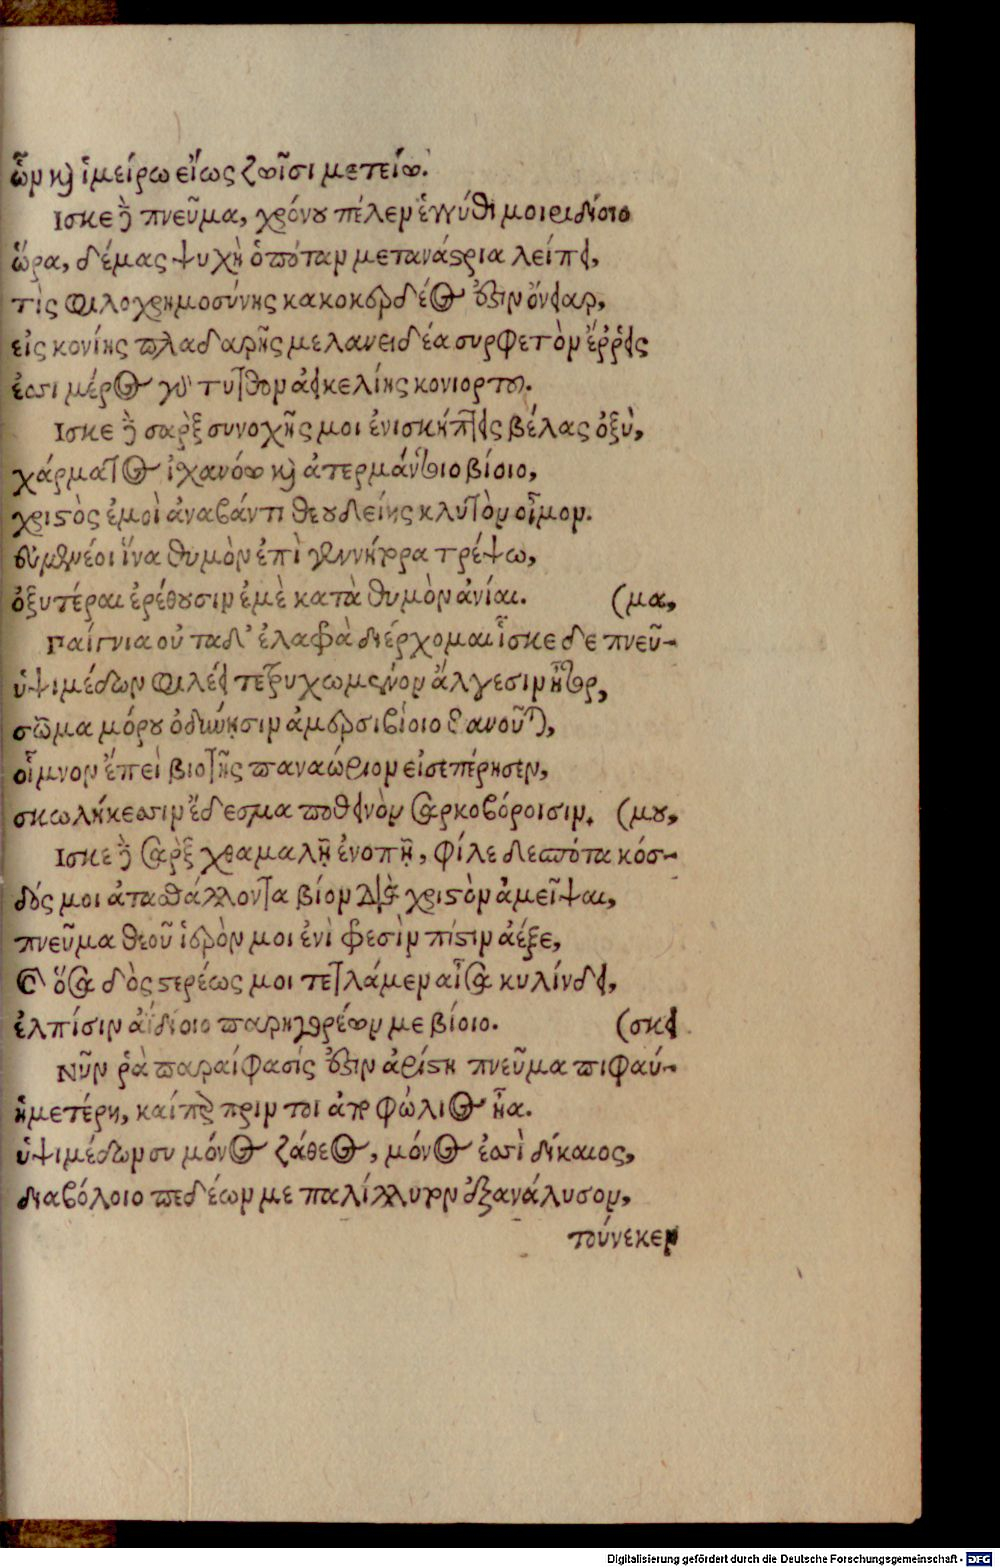 ὧν καὶ ἱμείρω εἵως ζωῖσι μετείω.
Ισκε δὲ πνεῦμα, χρόνου πέλεν ἐγγύθι μοιριδίοιο
ὥρα, δέμας ψυχὴ ὁπόταν μετανάστρια λείπει,
τὶς φιλοχρημοσύνης κακοκερδέος ὄνειαρ,
εἰς κονίης πλαδαρῆς μελανειδέα συρφετὸν ἔῤῥεις
ἐσσι μέρος γοῦ τυτθὸν ἀεικελίης κονιορτοῦ.
Ισκε δὲ σαρξ συνοχῆς μοι ἐνισκήπτεις βέλας ὀξὺ,
χάρματος ἰχανόω καὶ ἀτερμάντοιο βίοιο,
χριστὸς ἐμοὶ ἀναβάντι θεουδείης κλυτὸν οἶμον.
θυμὸν ἐπὶ τρέψω,
ὀξυτέραι ἐρέθουσιν ἐμὲ κατὰ θυμὸν ἀνίαι. (μα,
Παίγνια οὐ ταδ' ἐλαφρὰ διέρχομαι ἴσκε δε πνεῦ-
ὑψιμέδων φιλέει τετρυχωμένον ἄλγεσιν ἦτορ,
σῶμα μόρου ὀδύνῃσιν ἀμερσιβίοιο θανοῦται,
οἷμνον ἔπεὶ βιοτῆς παναώριον εἰσεπέρησεν,
σκωλήκεσσιν ἔδεσμα ποθεινὸν σαρκοβόροισιν. (μου,
Ισκε δὲ σὰρξ χθαμαλῇ ἐνοπῇ, φίλε δεσπότα κόσ-
δός μοι ἀταθάλλοντα βίον διὰ χριστὸν ἀμεῖψαι,
πνεῦμα θεοῦ ἱερὸν μοι ἐνὶ φρεσὶν πίστιν ἀέξε,
ὅσα δὸς στερέως μοι τετλάμεν αἶσα κυλίνδει,
ἐλπίσιν ἀϊδίοιο παρηγορέων με βίοιο. (σκει
Νῦν ῥὰ παραίφασίς ἐστιν ἀρίστη πνεῦμα πιφαύ-
ἡμετέρη, καίπερ πριν τοι φώλιος ἦα.
ὑψιμέδων συ μόνος ζάθεος, μόνος ἐσσὶ δίκαιος,
διαβόλοιο πεδέων με παλίλλυτον ἐξανάλυσον,
τούνεκεν
Digitalisierung gefördert durch die Deutsche Forschungsgemeinschaft - DFG